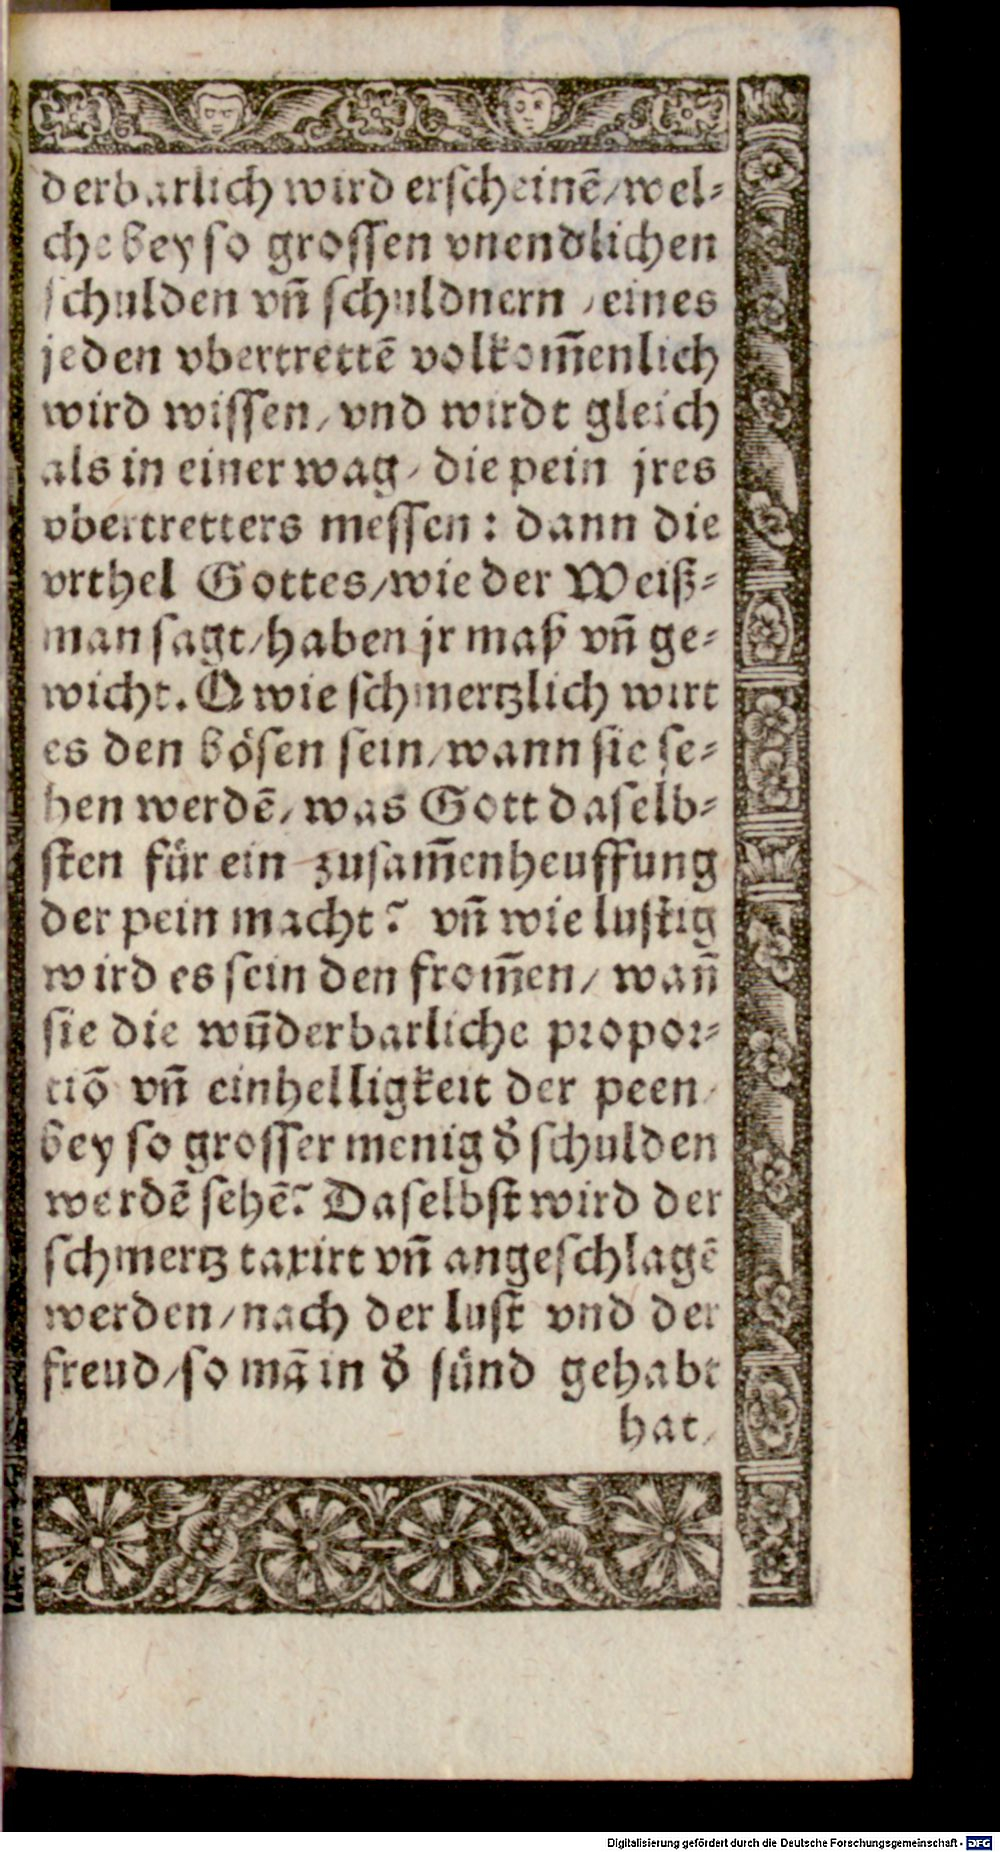 derbarlich wird erscheinē/wel⸗
che bey so grossen vnendlichen
schulden vñ schuldnern / eines
jeden vbertrettē volkom̃enlich
wird wissen/ vnd wirdt gleich
als in einer wag/ die pein jres
vbertretters messen: dann die
vrthel Gottes/wie der Weiß⸗
man sagt/haben jr maß vñ ge⸗
wicht. O wie schmertzlich wirt
es den bösen sein/wann sie se⸗
hen werdē/ was Gott daselb⸗
sten für ein zusam̃enheuffung
der pein macht? vñ wie lustig
wird es sein den from̃en/ wañ
sie die wūderbarliche propor⸗
tiō vñ einhelligkeit der peen/
bey so grosser menig d̄ schulden
werdē sehē? Daselbst wird der
schmertz taxirt vñ angeschlagē
werden/nach der lust vnd der
freud/so mā in d̄ sünd gehabt
hat/
Digitalisierung gefördert durch die Deutsche Forschungsgemeinschaft - DFG